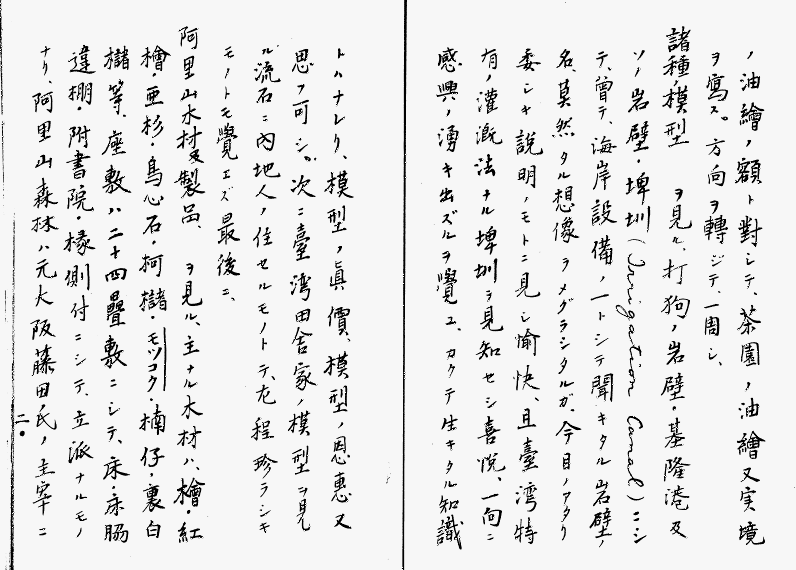 ノ油繪ノ額ト對シテ、茶園ノ油繪又実境
ヲ寫ス。方向ヲ轉ジテ、一周シ、
諸種ノ模型 ヲ見ル、打狗ノ岩壁・基隆港及
ソノ岩壁・埤圳(Irrigation Canal)ニシ
テ、曾テ、海岸設備ノ一トシテ聞キタル岩壁ノ
名、莫然タル想像ヲメグラシタルガ、今目ノアタリ
委シキ説明ノモトニ見シ愉快、且臺湾特
有ノ灌漑法ナル埤圳ヲ見知セシ喜悦、一向ニ
感興ノ湧キ出ズルヲ覺エ、カクテ生キタル知識
トハナレリ、模型ノ眞價、模型ノ恩惠又
思フ可シ。次ニ臺湾田舎家ノ模型ヲ見
ル流石ニ内地人ノ住セルモノトテ、左程珍ラシキ
モノトモ覺エズ最後ニ、
阿里山木材及製品、 ヲ見ル、主ナル木材ハ、檜・紅
檜・亜杉・烏心石・柯櫧・モツコク・楠仔・裏白
櫧等、座敷ハ二十四疊敷ニシテ、床・床脇
違棚附書院・椽側付ニシテ、立派ナルモノ
ナリ、阿里山森林ハ元大阪藤田氏ノ主宰ニ
二〇